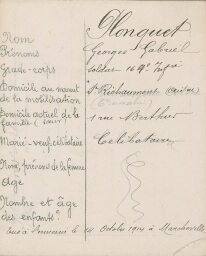 Plonquet
Nom
Prénoms Georges Gabriel
Grade-corps soldat 164e Infie
Domicile au moment St Richaumont (Aisne)
de la mobilisation
Domicile actuel de la 1 rue Berthier
famille
Marié-veuf, célibataire Célibataire
Nom, prénoms de la femme
Age
Nombre et âge
des enfants
Tué à l'ennemi le Octobre 1914 à Mancheville